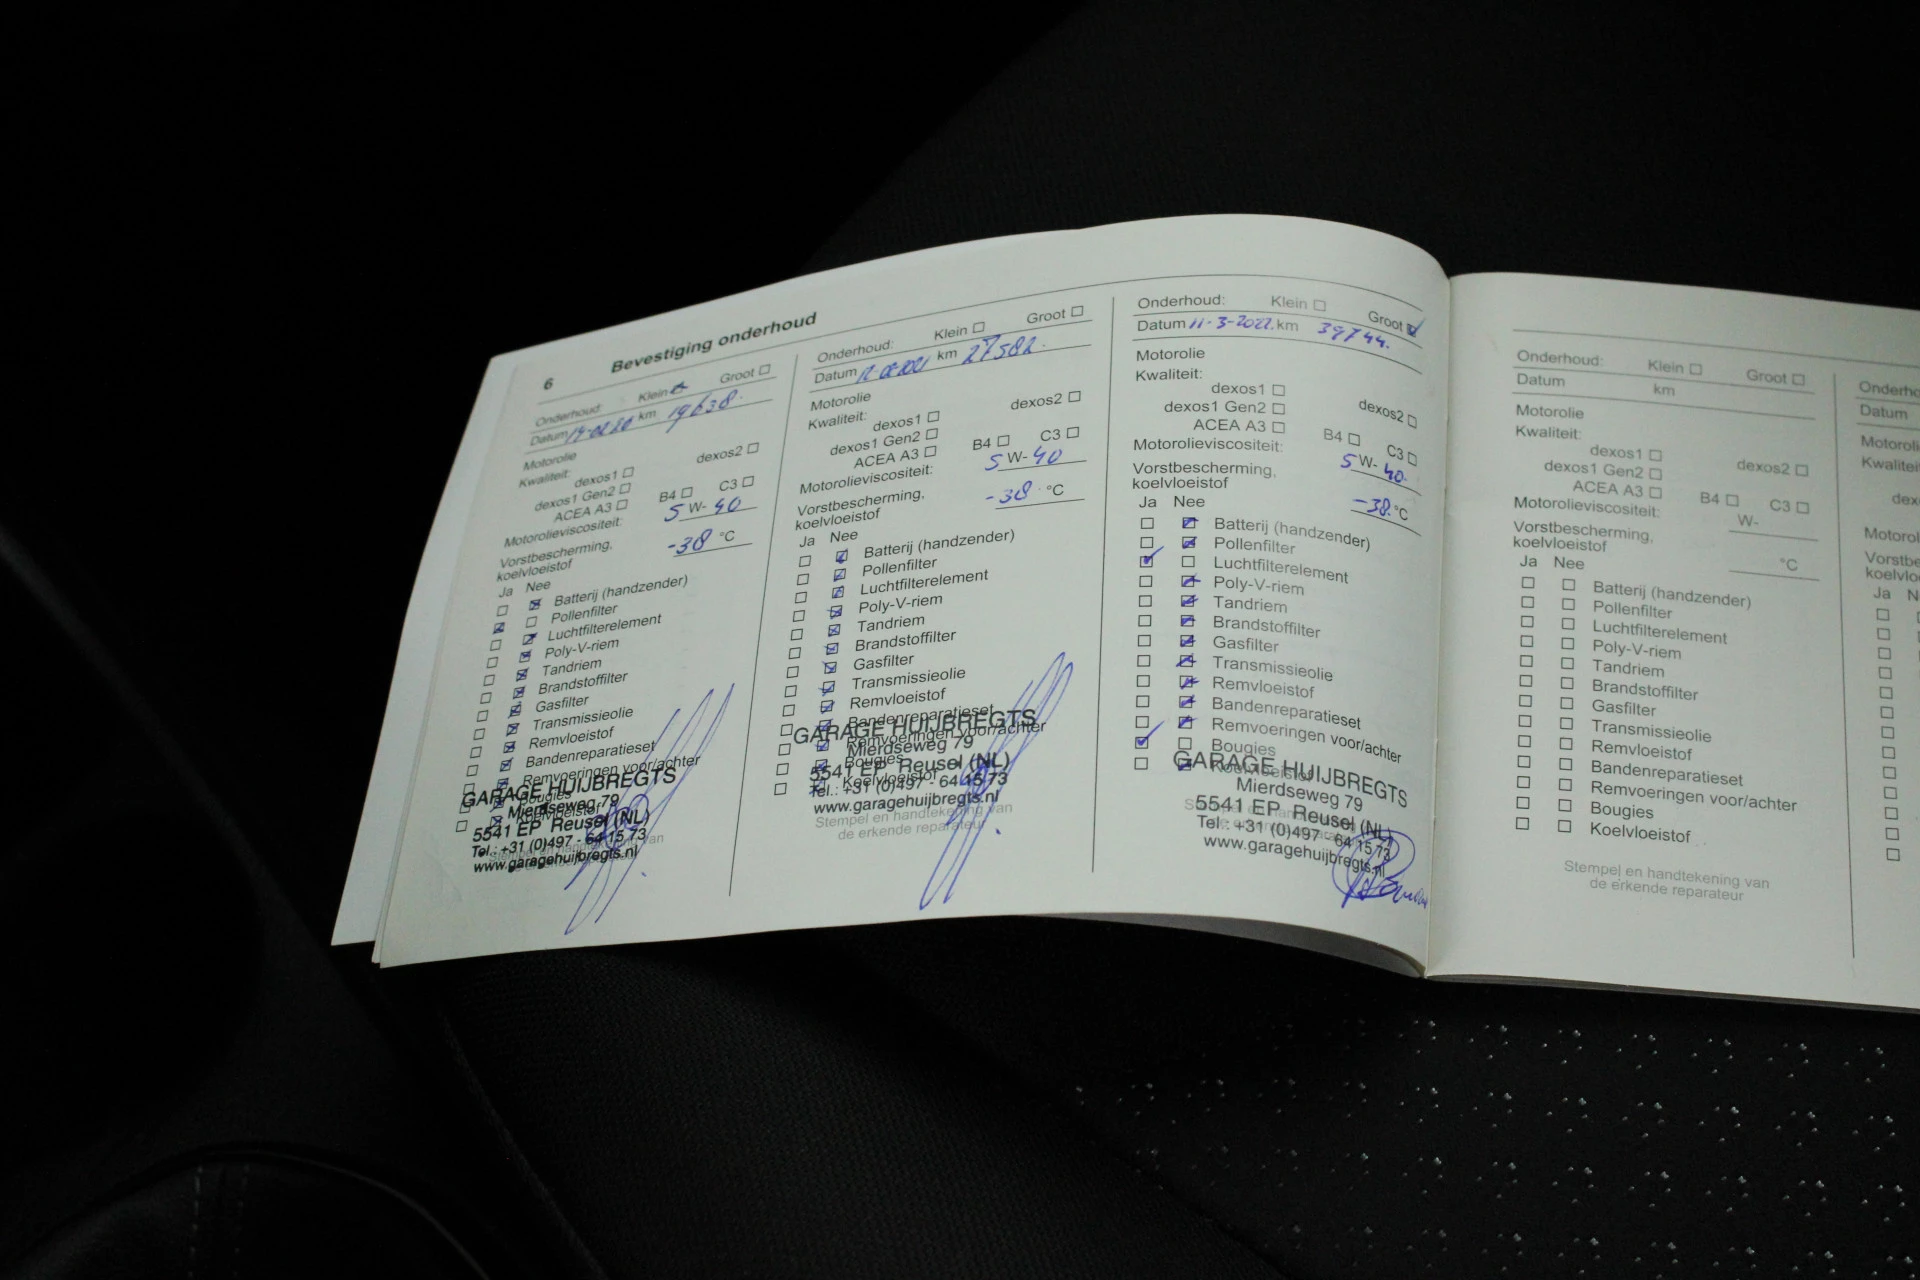 6 Bevestiging onderhoud
Onderhoud: Klein Groot
Datum km 19638.
Motorolie
Kwaliteit: dexos1 dexos2
dexos1 Gen2
ACEA A3 B4 C3
Motorolieviscositeit: 5 W- 40
Vorstbescherming,
koelvloeistof -38 °C
Ja Nee
Batterij (handzender)
Pollenfilter
Luchtfilterelement
Poly-V-riem
Tandriem
Brandstoffilter
Gasfilter
Transmissieolie
Remvloeistof
Bandenreparatieset
Remvoeringen voor/achter
Bougies
Koelvloeistof
GARAGE HUIJBREGTS
Mierdseweg 79
5541 EP Reusel (NL)
Tel.: +31 (0)497 - 64 15 73
www.garagehuijbregts.nl
Onderhoud: Klein Groot
Datum km 27582.
Motorolie
Kwaliteit:
dexos1 dexos2
dexos1 Gen2
ACEA A3 B4 C3
Motorolieviscositeit: 5 W- 40
Vorstbescherming,
koelvloeistof -38 °C
Ja Nee
Batterij (handzender)
Pollenfilter
Luchtfilterelement
Poly-V-riem
Tandriem
Brandstoffilter
Gasfilter
Transmissieolie
Remvloeistof
Bandenreparatieset
Remvoeringen voor/achter
Bougies
Koelvloeistof
GARAGE HUIJBREGTS
Mierdseweg 79
5541 EP Reusel (NL)
Tel.: +31 (0)497 - 64 15 73
www.garagehuijbregts.nl
Stempel en handtekening van
de erkende reparateur
Onderhoud: Klein Groot
Datum 11-3-2022. km 39744.
Motorolie
Kwaliteit:
dexos1 dexos2
dexos1 Gen2
ACEA A3 B4 C3
Motorolieviscositeit: 5 W- 40.
Vorstbescherming,
koelvloeistof -38. °C
Ja Nee
Batterij (handzender)
Pollenfilter
Luchtfilterelement
Poly-V-riem
Tandriem
Brandstoffilter
Gasfilter
Transmissieolie
Remvloeistof
Bandenreparatieset
Remvoeringen voor/achter
Bougies
Koelvloeistof
GARAGE HUIJBREGTS
Mierdseweg 79
5541 EP Reusel (NL)
Tel.: +31 (0)497 - 64 15 73
www.garagehuijbregts.nl
Onderhoud: Klein Groot
Datum km
Motorolie
Kwaliteit:
dexos1 dexos2
dexos1 Gen2
ACEA A3 B4 C3
Motorolieviscositeit: W-
Vorstbescherming,
koelvloeistof °C
Ja Nee
Batterij (handzender)
Pollenfilter
Luchtfilterelement
Poly-V-riem
Tandriem
Brandstoffilter
Gasfilter
Transmissieolie
Remvloeistof
Bandenreparatieset
Remvoeringen voor/achter
Bougies
Koelvloeistof
Stempel en handtekening van
de erkende reparateur
Datum
Ja